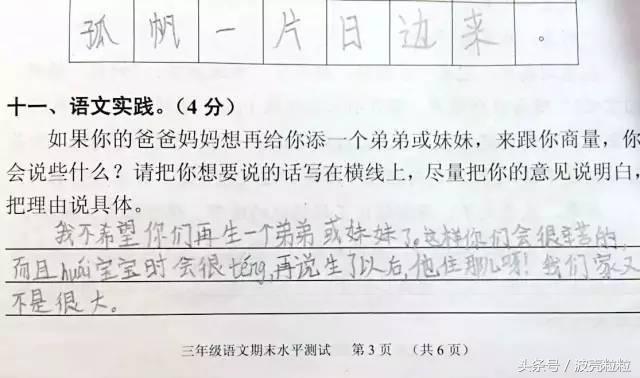 孤帆一片日边来。
十一、语文实践。（4分）
如果你的爸爸妈妈想再给你添一个弟弟或妹妹，来跟你商量，你
会说些什么？请把你想要说的话写在横线上，尽量把你的意见说明白，
把理由说具体。
我不希望你们再生一个弟弟或妹妹了。这样你们会很辛苦的，
而且huái宝宝时会很téng，再说生了以后，他住那儿呀！我们家又
不是很大。
三年级语文期末水平测试 第3页 （共6页）
头条号 / 波壳粒粒